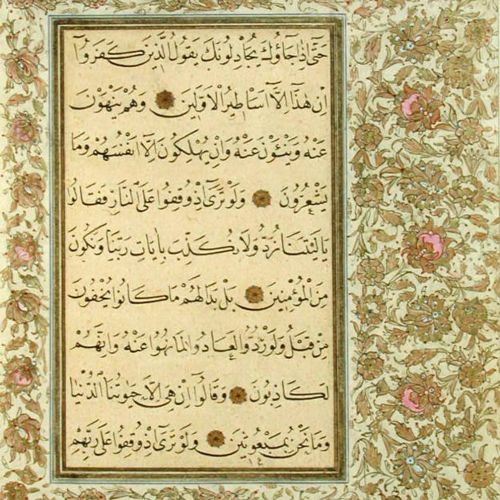 حَتَّى إِذَا جَاؤُكَ يُجَادِلُونَكَ يَقُولُ الَّذِينَ كَفَرُوا
اِنْ هٰذَا اِلَّا اَسَاطِيرُ الْاَوَّلِينَ وَهُمْ يَنْهَوْنَ
عَنْهُ وَيَنْئَوْنَ عَنْهُ وَاِنْ يُهْلِكُونَ اِلَّا اَنْفُسَهُمْ وَمَا
يَشْعُرُونَ وَلَوْ تَرٰٓى اِذْ وُقِفُوا عَلَى النَّارِ فَقَالُوا
يَا لَيْتَنَا نُرَدُّ وَلَا نُكَذِّبَ بِاٰيَاتِ رَبِّنَا وَنَكُونَ
مِنَ الْمُؤْمِنِينَ بَلْ بَدَا لَهُمْ مَا كَانُوا يُخْفُونَ
مِنْ قَبْلُ وَلَوْ رُدُّوا لَعَادُوا لِمَا نُهُوا عَنْهُ وَاِنَّهُمْ
لَكَاذِبُونَ وَقَالُوا اِنْ هِيَ اِلَّا حَيٰوتُنَا الدُّنْيَا
وَمَا نَحْنُ بِمَبْعُوثِينَ وَلَوْ تَرٰٓى اِذْ وُقِفُوا عَلٰى رَبِّهِمْ